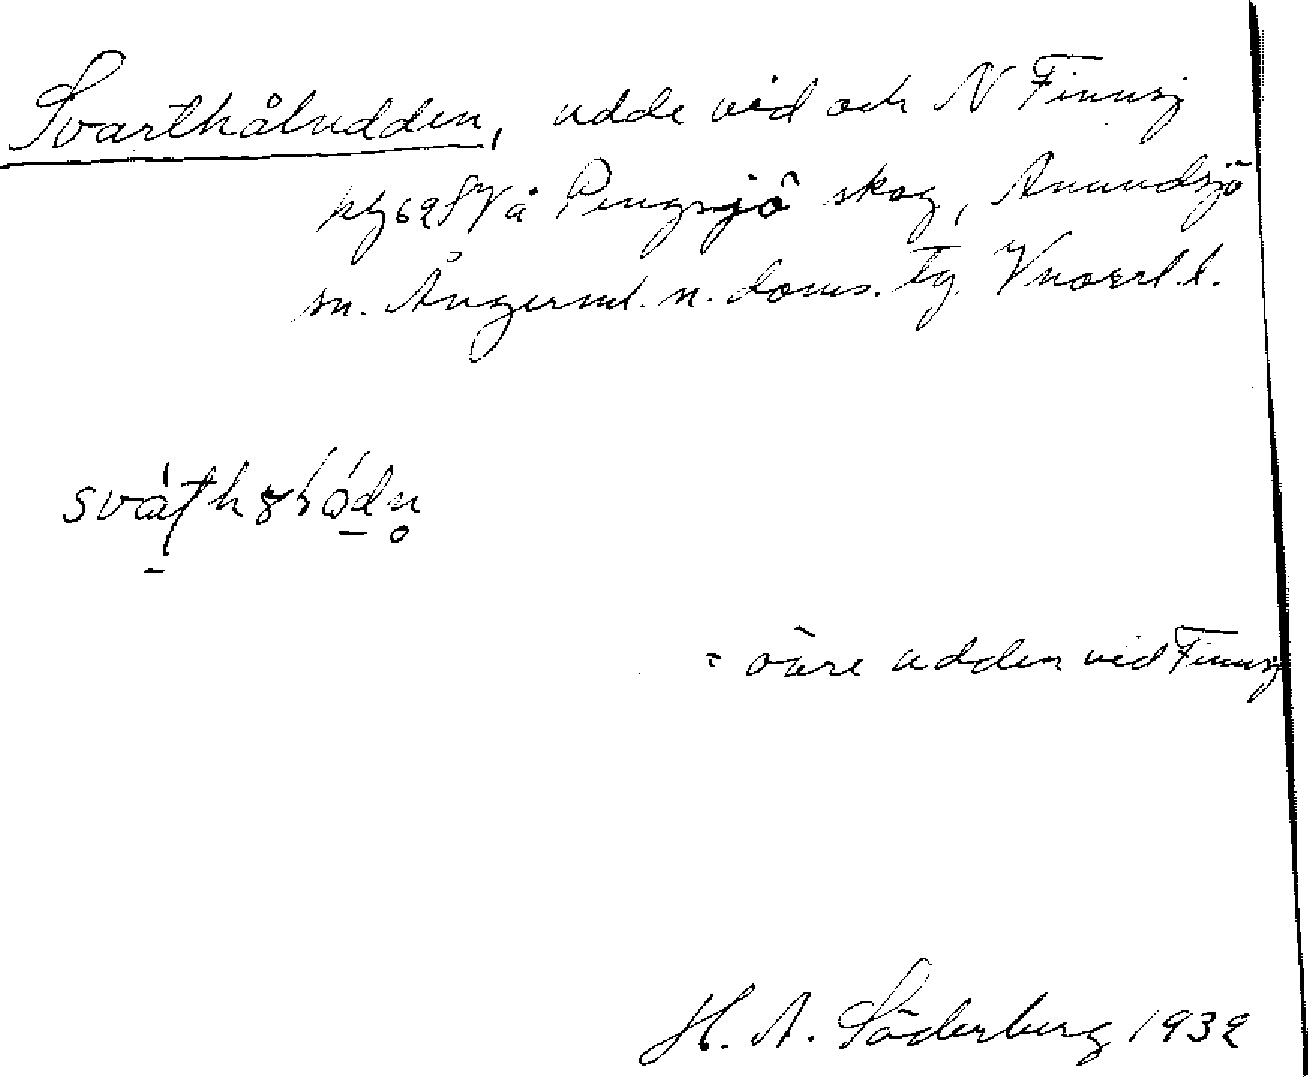 Svarthåludden, udde vid och N Finnsj
kbg 62 SV å Pengsjö skog, Anundsjö
sn. Ångerml. n. doms. tg. Vnorrl. l.
= övre udden vid Finnsj
H. A. Söderberg 1932